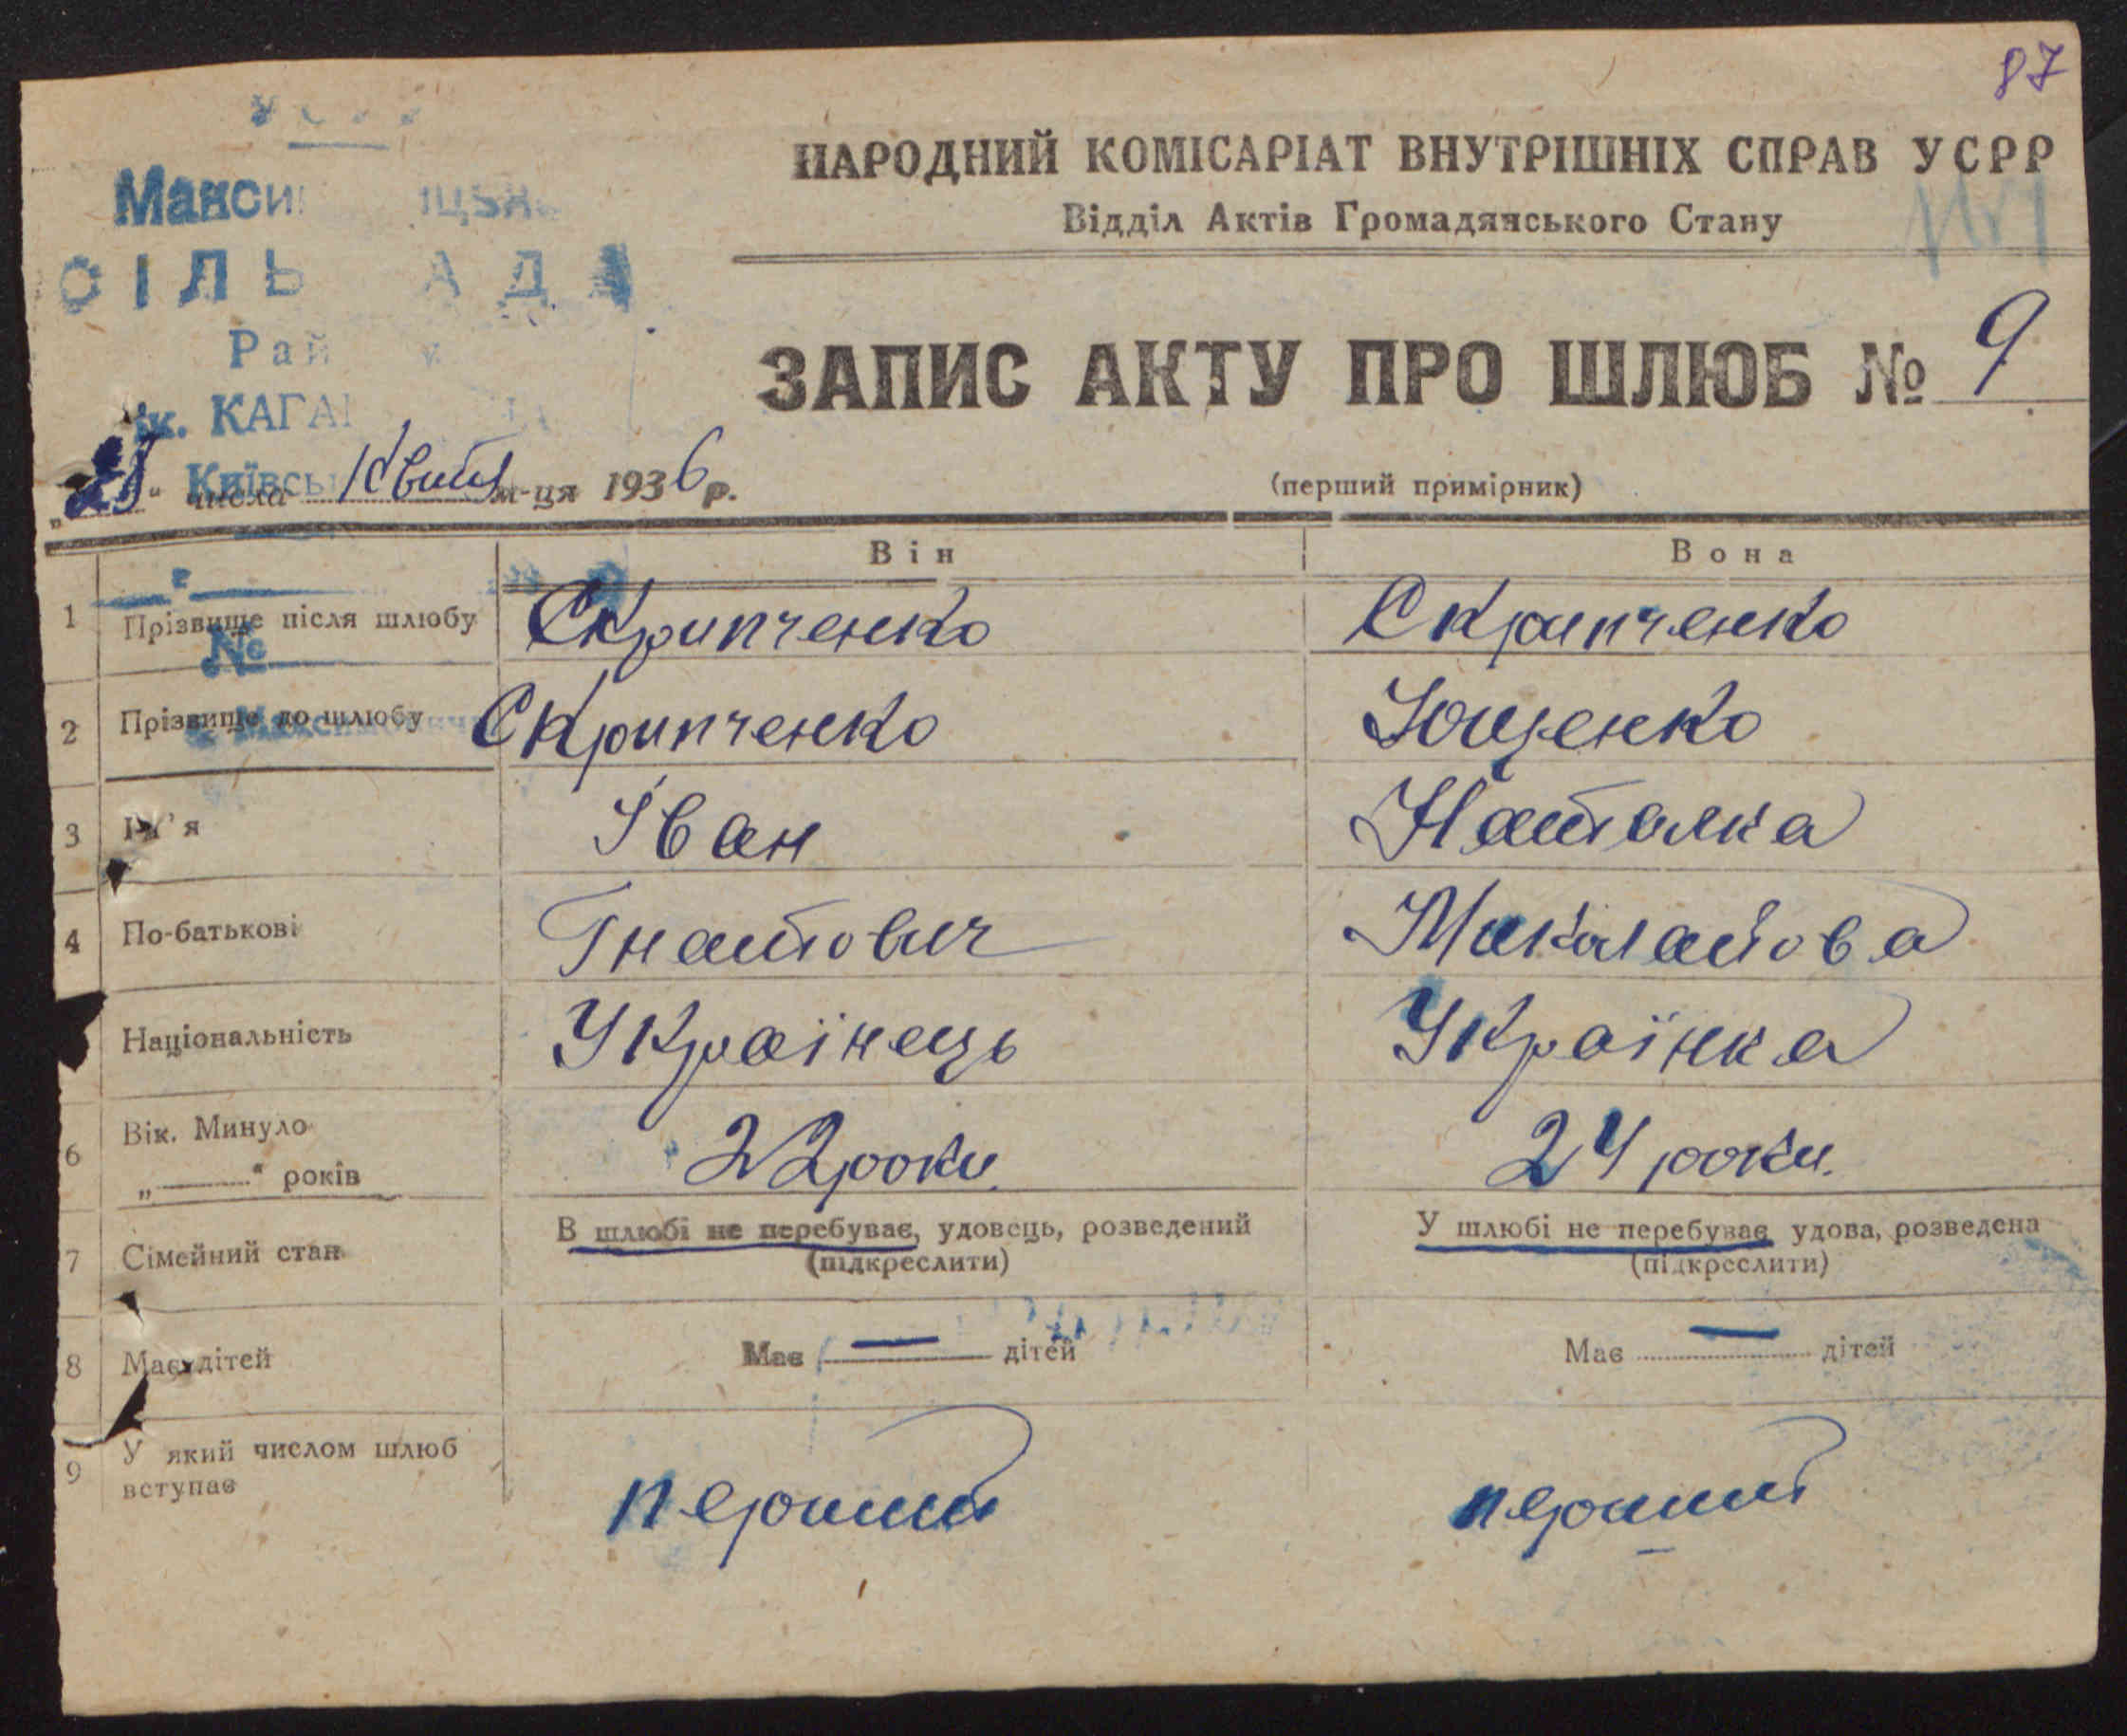 87
НАРОДНИЙ КОМІСАРІАТ ВНУТРІШНІХ СПРАВ УСРР
Відділ Актів Громадянського Стану
ЗАПИС АКТУ ПРО ШЛЮБ № 9
числа Квітня м-ця 1936 р.
(перший примірник)
Він Вона
1 Прізвище після шлюбу Скрипченко Скрипченко
№
2 Прізвище до шлюбу Скрипченко Ющенко
3 Ім'я Іван Наталка
4 По-батькові Гнатович Миколайова
Національність Українець Українка
6 Вік. Минуло 22 роки. 24 роки.
„———“ років
7 Сімейний стан В шлюбі не перебуває, удовець, розведений У шлюбі не перебуває удова, розведена
(підкреслити) (підкреслити)
8 Має дітей Має — дітей Має — дітей
9 У який числом шлюб
вступає перший перший